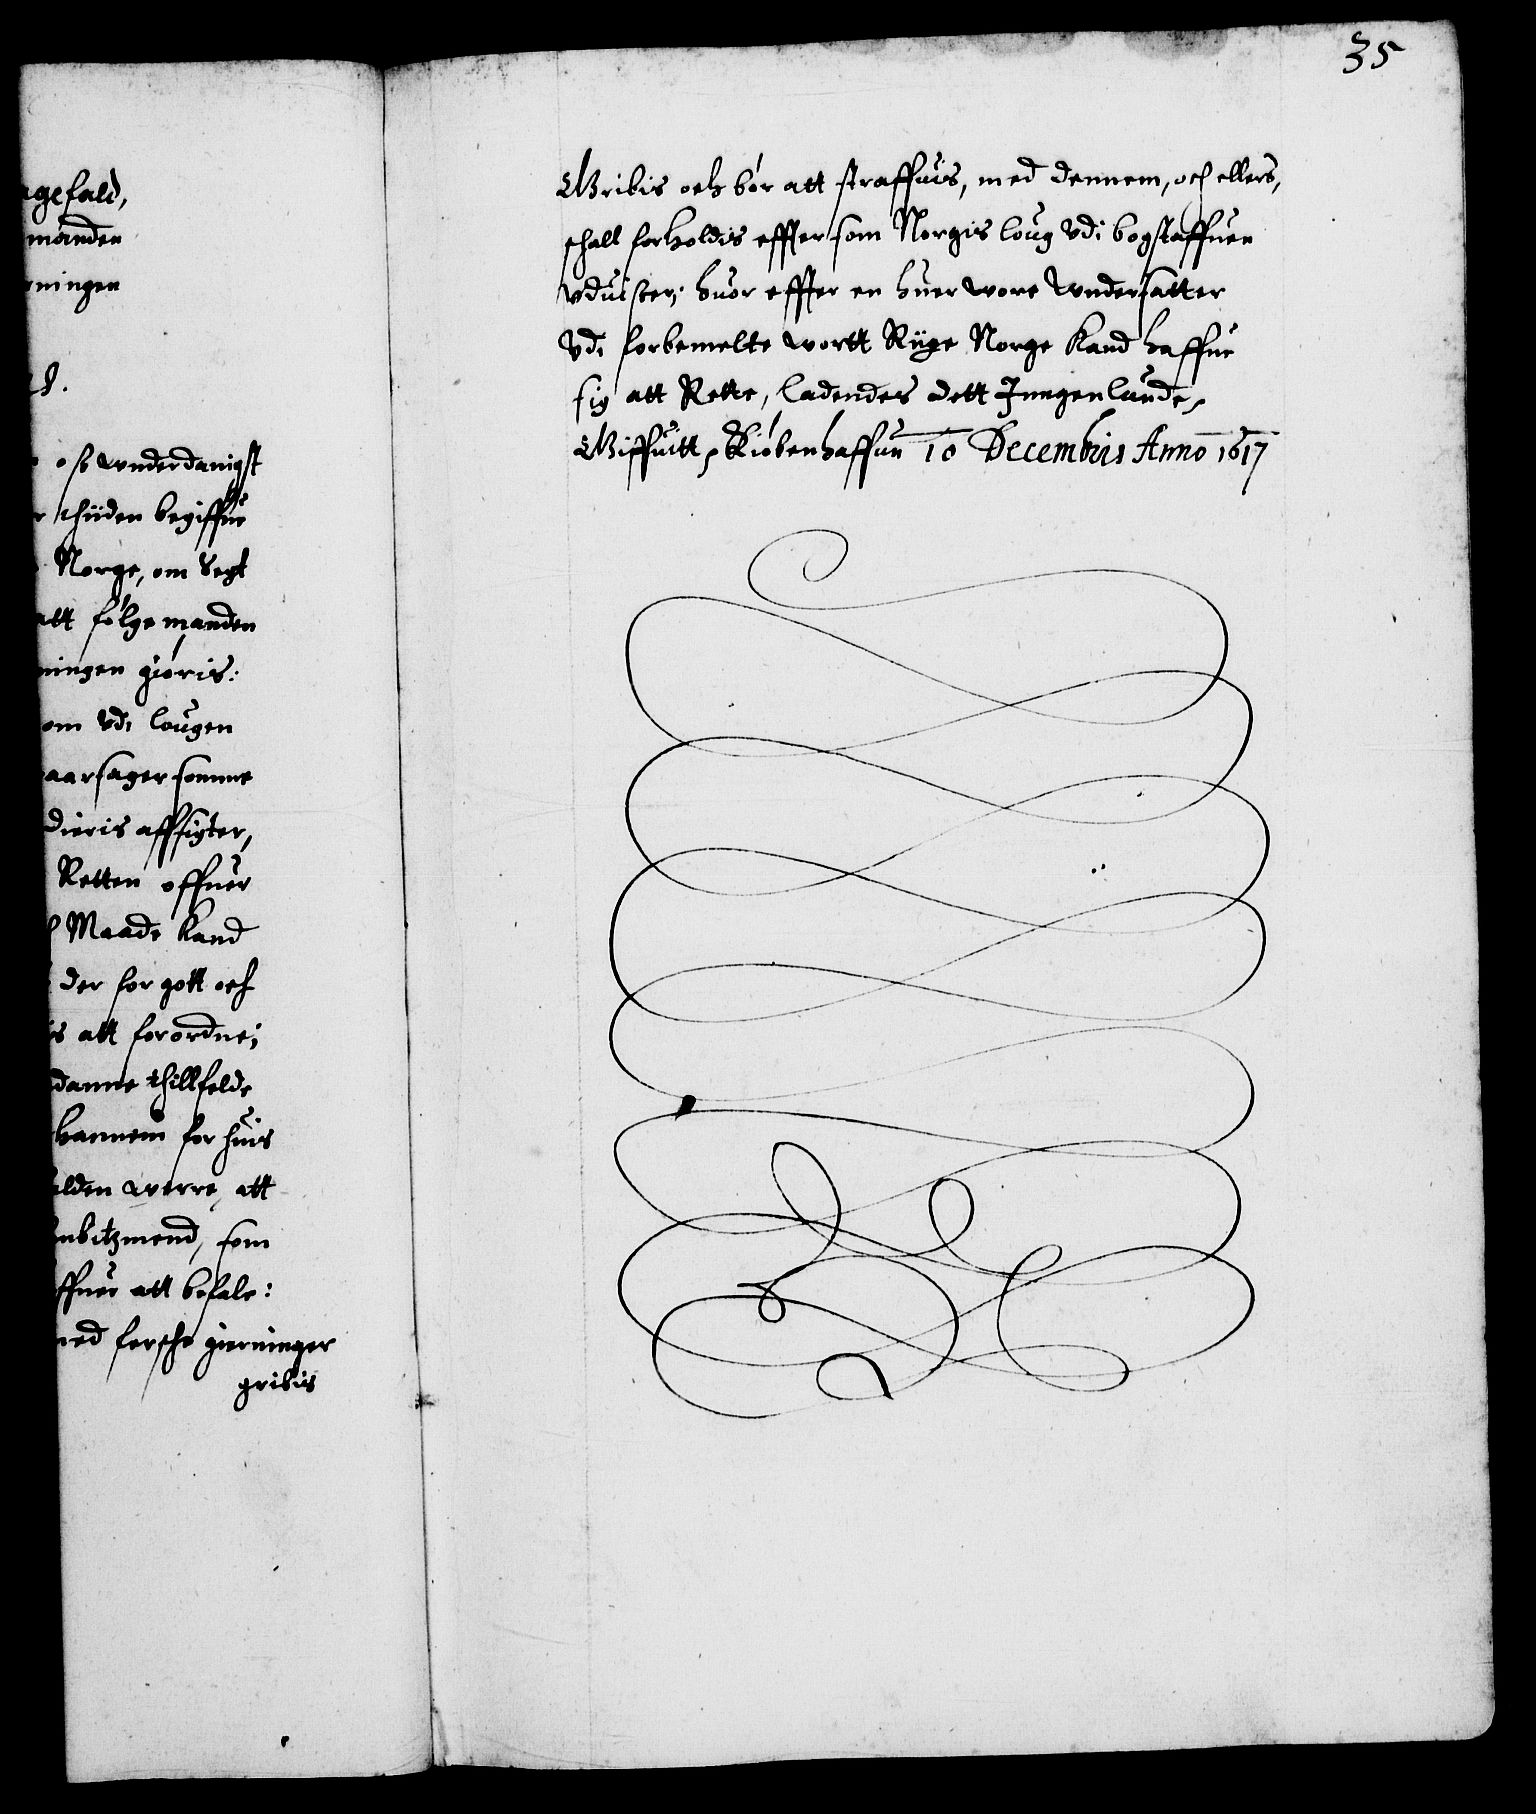 agefald,
manden
rningen
d.
osz wnderdanigst
r thiiden begiffue
Norge, om Segt
att følge manden
ningen giøris:
om Vdi lougen
aarsager somme
dieris affsigter,
Retten offuer
Maade Kand
der for gott och
is att forordne;
danne thillfelde
hannem for huis
alden werre, att
mbitzmend, som
ffuer att befale:
med fersche gierninger
gribis
35
Gribis och bør att straffuis, med dennem, och ellers,
schall forholdis effter som Norgis loug Vdi bogstaffuen
vduiser; huor effter en huer wore Wndersatter
Vdi forbemelte wortt Riige Norge Kand haffue
sig att Rette, ladendes dett Jnngenlunde,
Giffuitt, Kiøbenhaffun 10 Decembris Anno 1617